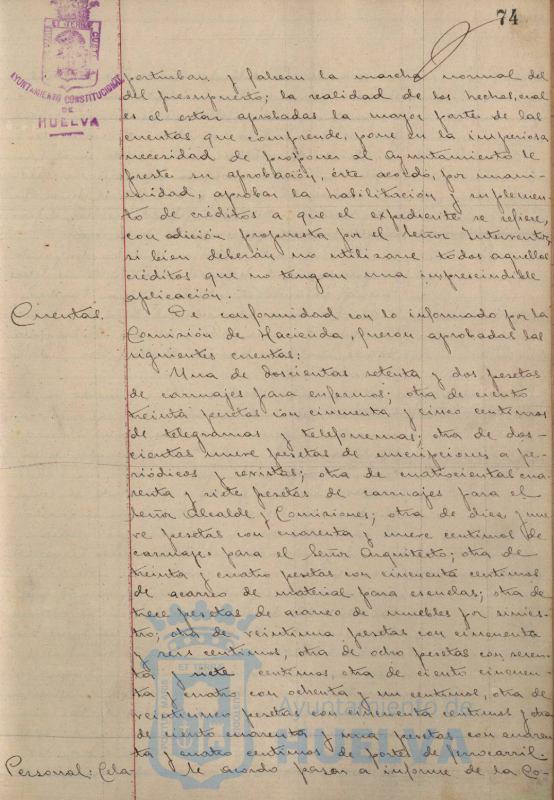 74
AYUNTAMIENTO CONSTITUCIONAL
DE
HUELVA
perturban y falsean la marcha normal del
del presupuesto; la realidad de los hechos, cual
es el estar aprobadas la mayor parte de las
cuentas que comprende, pone en la imperiosa
necesidad de proponer al Ayuntamiento le
preste su aprobación, éste acordó, por unani-
midad, aprobar la habilitación y suplemen-
to de créditos a que el expediente se refiere,
con adición propuesta por el Señor Interventor,
si bien deberán no utilizarse todos aquellos
créditos que no tengan una imprescindible
aplicación.
Cuentas.
De conformidad con lo informado por la
Comisión de Hacienda, fueron aprobadas las
siguientes cuentas:
Una de doscientas setenta y dos pesetas
de carruajes para enfermos; otra de ciento
treinta pesetas con cincuenta y cinco centimos
de telegramas y telefonemas; otra de dos-
cientas nueve pesetas de suscripciones a pe-
riódicos y revistas; otra de cuatrocientas cua-
renta y siete pesetas de carruajes para el
Señor Alcalde y Comisiones; otra de diez y nue-
ve pesetas con cuarenta y nueve centimos de
carruajes para el Señor Arquitecto; otra de
treinta y cuatro pesetas con cincuenta centimos
de acarreo de material para escuelas; otra de
trece pesetas de acarreo de muebles por sinies-
tro; otra de veintiuna pesetas con cincuenta
y seis centimos, otra de ocho pesetas con sesen-
ta y siete centimos, otra de ciento cincuen-
ta y cuatro con ochenta y un centimos, otra de
veintinueve pesetas con cincuenta centimos y otra
de ciento cuarenta y una pesetas con cuaren-
ta y cuatro centimos de portes de ferrocarril.
Personal: Cela-
Se acordó pasar a informe de la Co-
Ayuntamiento de
HUELVA